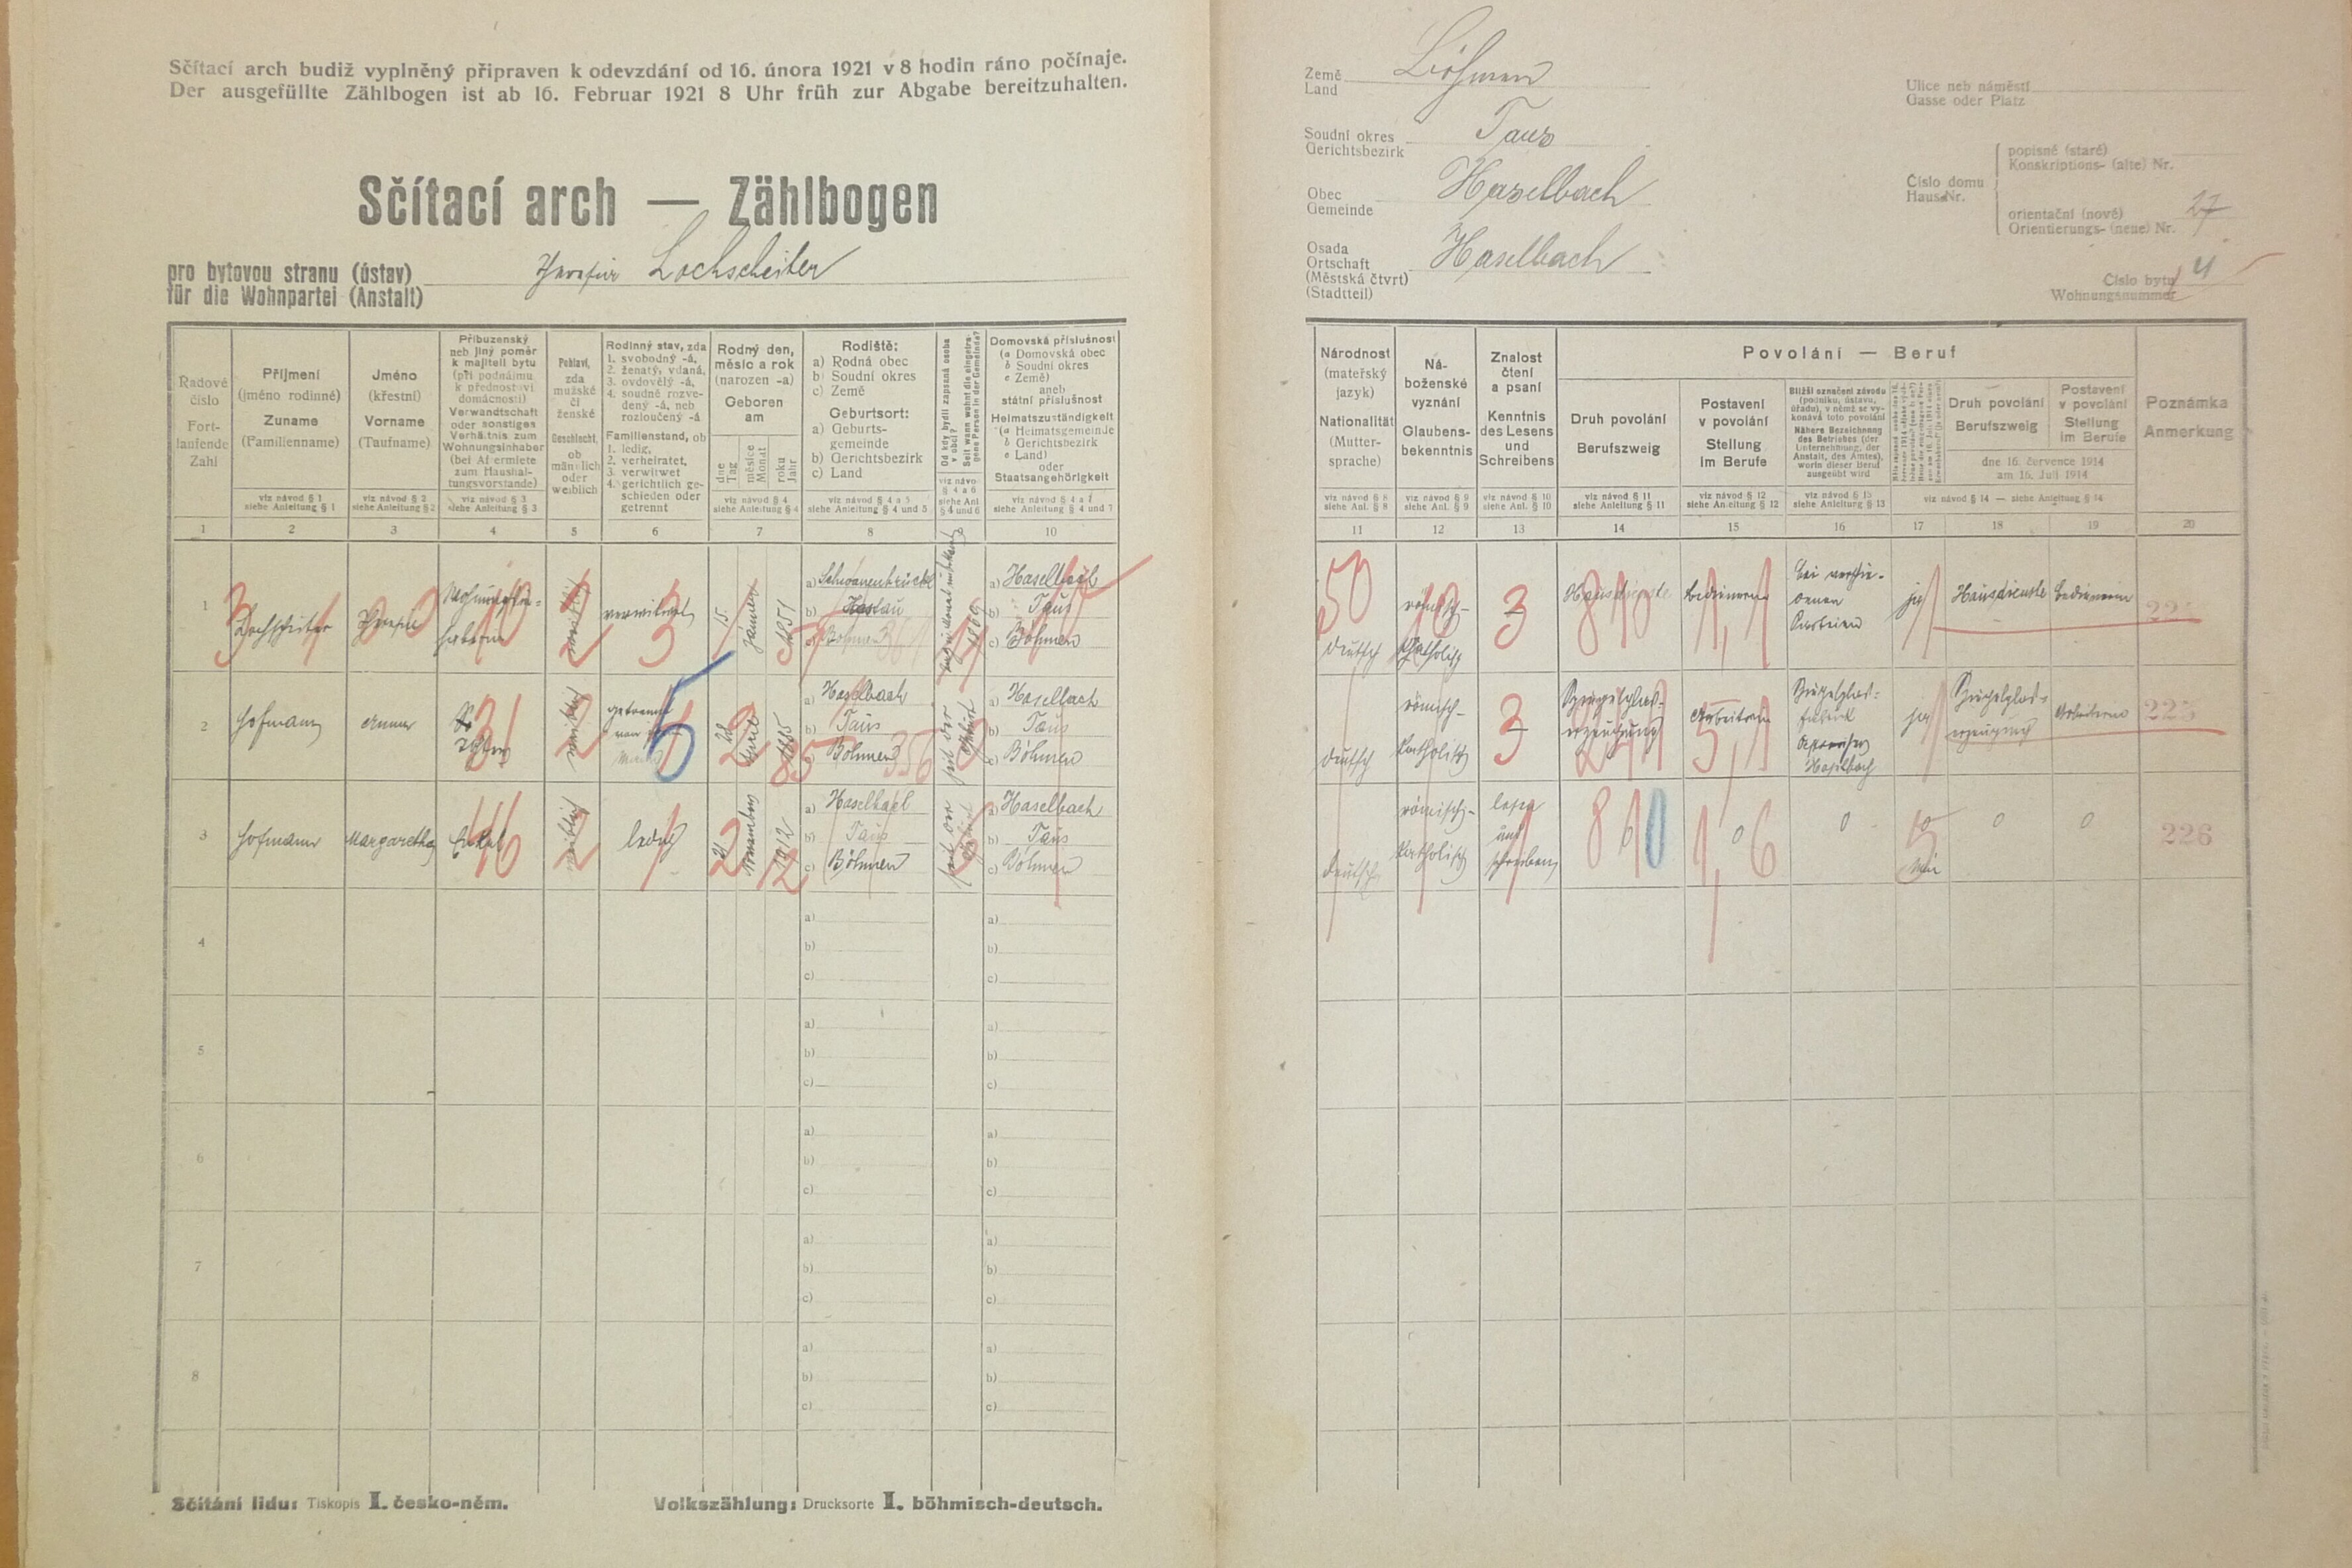 Sčítací arch budiž vyplněný připraven k odevzdání od 16. února 1921 v 8 hodin ráno počínaje.
Der ausgefüllte Zählbogen ist ab 16. Februar 1921 8 Uhr früh zur Abgabe bereitzuhalten.
Sčítací arch — Zählbogen
pro bytovou stranu (ústav)
für die Wohnpartei (Anstalt)
Lochscheiter
Země
Land
Böhmen
Soudní okres
Gerichtsbezirk
Taus
Obec
Gemeinde
Haselbach
Osada
Ortschaft
(Městská čtvrt)
(Stadtteil)
Haselbach
Ulice neb náměstí
Gasse oder Platz
Číslo domu
Haus-Nr.
popisné (staré)
Konskriptions- (alte) Nr.
orientační (nové)
Orientierungs- (neue) Nr.
27
Číslo bytu
Wohnungsnummer
4
Řadové
číslo
Fort-
laufende
Zahl
Příjmení
(jméno rodinné)
Zuname
(Familienname)
viz návod § 1
siehe Anleitung § 1
Jméno
(křestní)
Vorname
(Taufname)
viz návod § 2
siehe Anleitung § 2
Příbuzenský
neb jiný poměr
k majiteli bytu
(při podnájmu
k přednostovi
domácnosti)
Verwandtschaft
oder sonstiges
Verhältnis zum
Wohnungsinhaber
(bei Aftermiete
zum Haushal-
tungsvorstande)
viz návod § 3
siehe Anleitung § 3
Pohlaví,
zda
mužské
či
ženské
Geschlecht,
ob
männlich
oder
weiblich
Rodinný stav, zda
1. svobodný -á,
2. ženatý, vdaná,
3. ovdovělý -á,
4. soudně rozve-
dený -á, neb
rozloučený -á
Familienstand, ob
1. ledig,
2. verheiratet,
3. verwitwet
4. gerichtlich ge-
schieden oder
getrennt
Rodný den,
měsíc a rok
(narozen -a)
Geboren
am
dne
Tag
měsíce
Monat
roku
Jahr
viz návod § 4
siehe Anleitung § 4
Rodiště:
a) Rodná obec
b) Soudní okres
c) Země
Geburtsort:
a) Geburts-
gemeinde
b) Gerichtsbezirk
c) Land
viz návod § 4 a 5
siehe Anleitung § 4 und 5
Od kdy bydlí zapsaná osoba
v obci?
Seit wann wohnt die eingetra-
gene Person in der Gemeinde?
viz návod
§ 4 a 6
siehe Anl.
§ 4 und 6
Domovská příslušnost
(a Domovská obec
b Soudní okres
c Země)
aneb
státní příslušnost
Heimatszuständigkeit
(a Heimatsgemeinde
b Gerichtsbezirk
c Land)
oder
Staatsangehörigkeit
viz návod § 4 a 7
siehe Anleitung § 4 und 7
Národnost
(mateřský
jazyk)
Nationalität
(Mutter-
sprache)
viz návod § 8
siehe Anl. § 8
Ná-
boženské
vyznání
Glaubens-
bekenntnis
viz návod § 9
siehe Anl. § 9
Znalost
čtení
a psaní
Kenntnis
des Lesens
und
Schreibens
viz návod § 10
siehe Anl. § 10
Povolání — Beruf
Druh povolání
Berufszweig
viz návod § 11
siehe Anleitung § 11
Postavení
v povolání
Stellung
im Berufe
viz návod § 12
siehe Anleitung § 12
Bližší označení závodu
(podniku, ústavu,
úřadu), v němž se vy-
konává toto povolání
Nähere Bezeichnung
des Betriebes (der
Unternehmung, der
Anstalt, des Amtes),
worin dieser Beruf
ausgeübt wird
viz návod § 13
siehe Anleitung § 13
Druh povolání
Berufszweig
Postavení
v povolání
Stellung
im Berufe
dne 16. července 1914
am 16. Juli 1914
viz návod § 14 — siehe Anleitung § 14
Poznámka
Anmerkung
1 2 3 4 5 6 7 8 10
11 12 13 14 15 16 17 18 19 20
1
verwitwet
15.
Jänner
1851
a)
b)
c) Böhmen
1869
a) Haselbach
b) Taus
c) Böhmen
deutsch
römisch-
katholisch
3
Hausdienste
Bedienerin
bei verschie-
denen
Parteien
ja
Hausdienste
Bedienerin
2
Hofmann
Anna
getrennt
1885
a) Haselbach
b) Taus
c) Böhmen
356
seit der
Geburt
a) Haselbach
b) Taus
c) Böhmen
deutsch
römisch-
katholisch
3
Spiegelglas-
erzeugung
Arbeiterin
Spiegelglas-
fabrik
Haselbach
ja
Spiegelglas-
erzeugung
Arbeiterin
225
3
Hofmann
Margaretha
Enkel
weiblich
ledig
November
1912
a) Haselbach
b) Taus
c) Böhmen
seit der
Geburt
a) Haselbach
b) Taus
c) Böhmen
deutsch
römisch-
katholisch
lesen
und
schreiben
0
0
0
0
226
4
a)
b)
c)
a)
b)
c)
5
a)
b)
c)
a)
b)
c)
6
a)
b)
c)
a)
b)
c)
7
a)
b)
c)
a)
b)
c)
8
a)
b)
c)
a)
b)
c)
Sčítání lidu: Tiskopis I. česko-něm.
Volkszählung: Drucksorte I. böhmisch-deutsch.